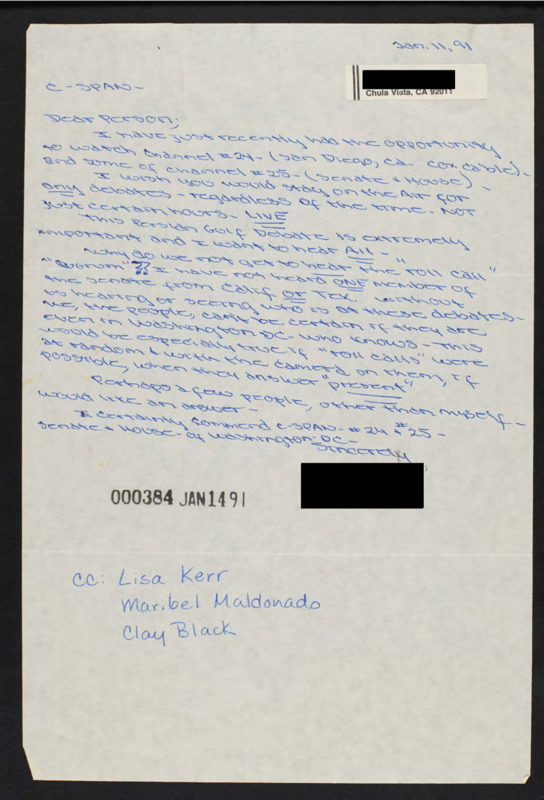 Jan. 11, 91
Chula Vista, CA 92011
C-SPAN-
Dear Person;
I have just recently had the opportunity
to watch channel #24- (San Diego, Ca. Cox Cable)-
and some of channel #25- (Senate & House) -
I wish you would stay on the air for
any debates- regardless of the time. Not
just certain hours- LIVE
This Persian Gulf Debate is extremely
important and I want to hear All-
Why do we not get to hear the "roll call"
"Quorum"?? I have not heard ONE member of
the Senate from Calif or Tex. Without
us hearing or seeing who is at these debates-
we, the people, can't be certain if they are
even in Washington DC- who knows- This
would be especially true if "roll calls" were
at random & with the camera on them, if
possible, when they answer "present"
Perhaps a few people, other than myself-
would like an answer-
I certainly commend C-SPAN- #24 & #25-
Senate & House- of Washington-DC-
Sincerely
000384 JAN1491
cc: Lisa Kerr
Maribel Maldonado
Clay Black